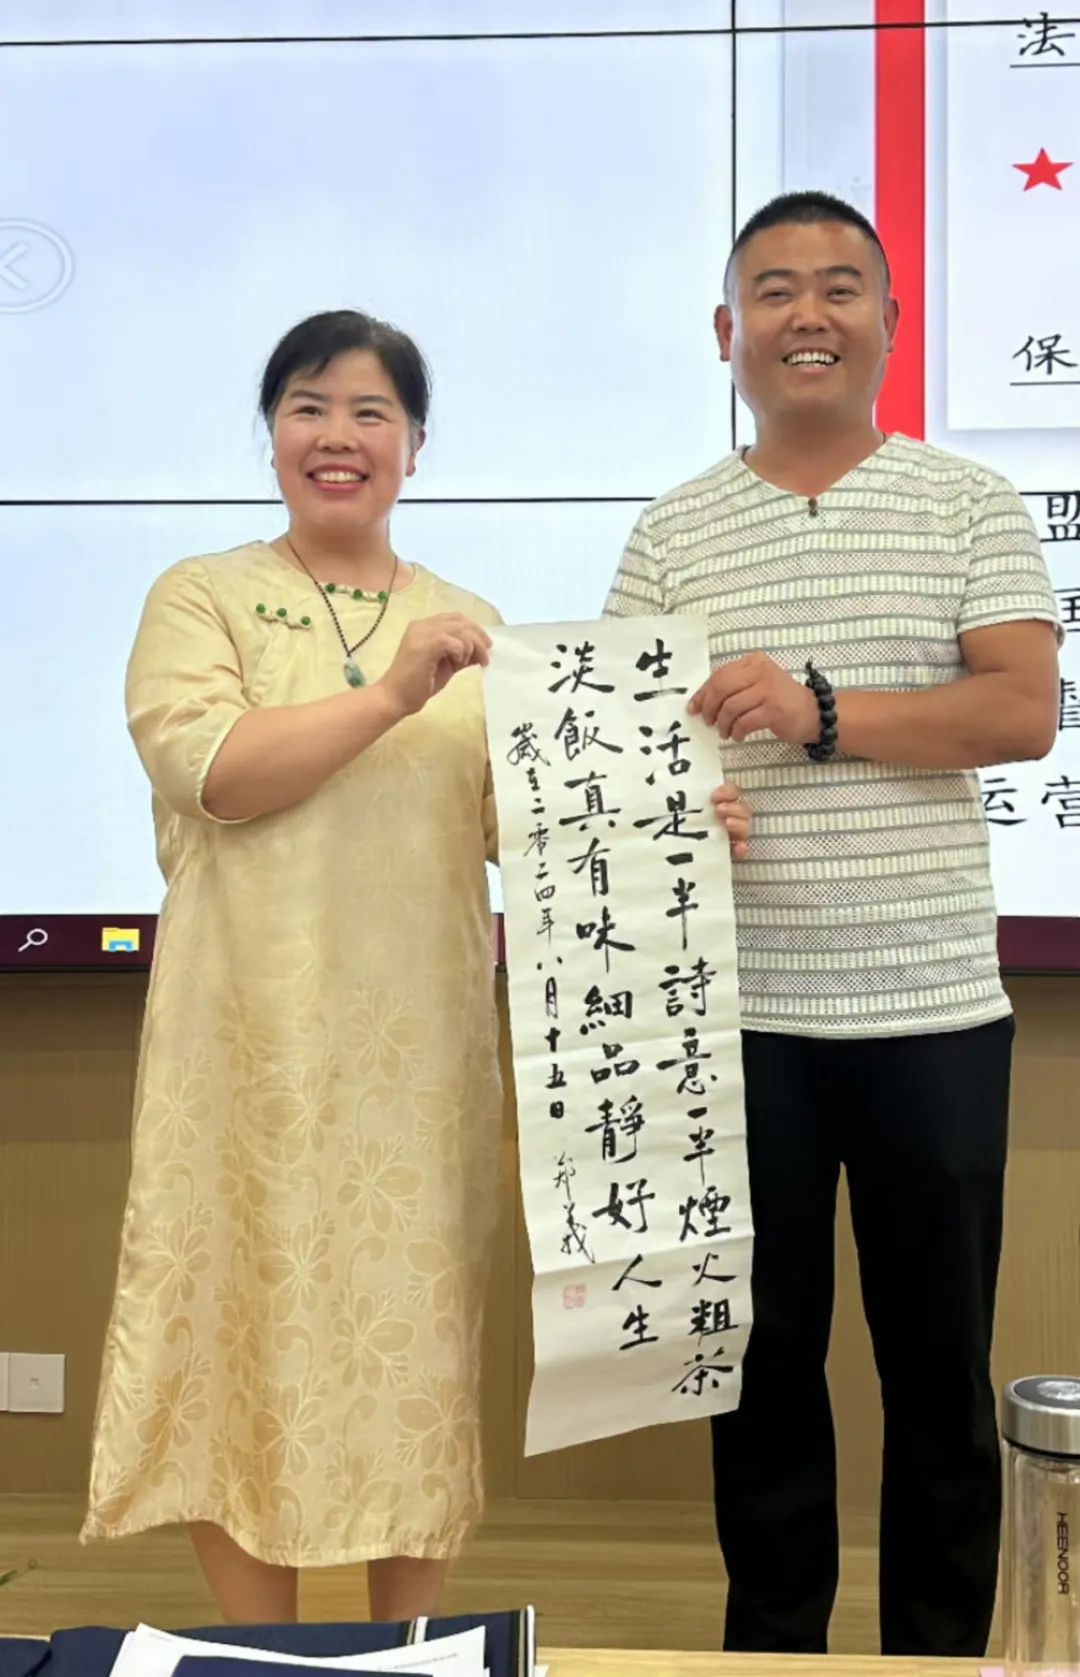 生活是一半詩意一半煙火粗茶
淡飯真有味細品靜好人生
歲在二零二四年八月十五日 郑義
法
保
盟
运营
HEENOOR